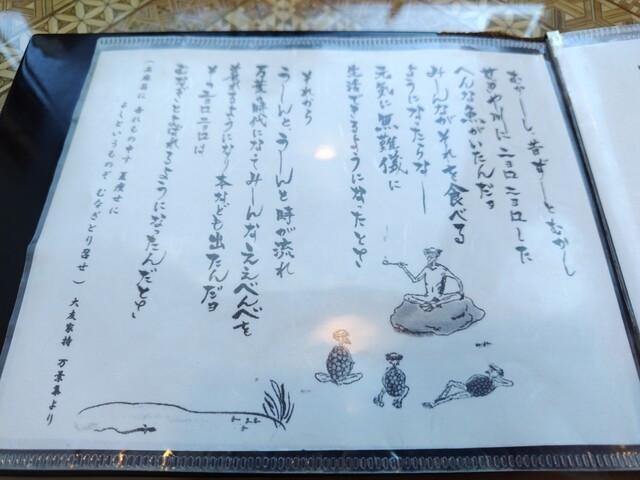 むかーしし、昔ずーっとむかし
せめや川にニョロニョロした
へんな魚がいたんだョ
みーんながそれを食べる
ようになったらなー
元気に無羅儀に
生活できるようになったとさ
それから
うーんとうーんと時が流れ
万葉時代になてみーんなええべべを
着れるようになり本なども出たんだョ
そーニョロニョロは
むなぎとよばれるようになったんだとさ
石麻呂に 吾れもの申す 夏痩せに
よしというものぞ むなぎとり召せ ) 大友家持 万葉集より